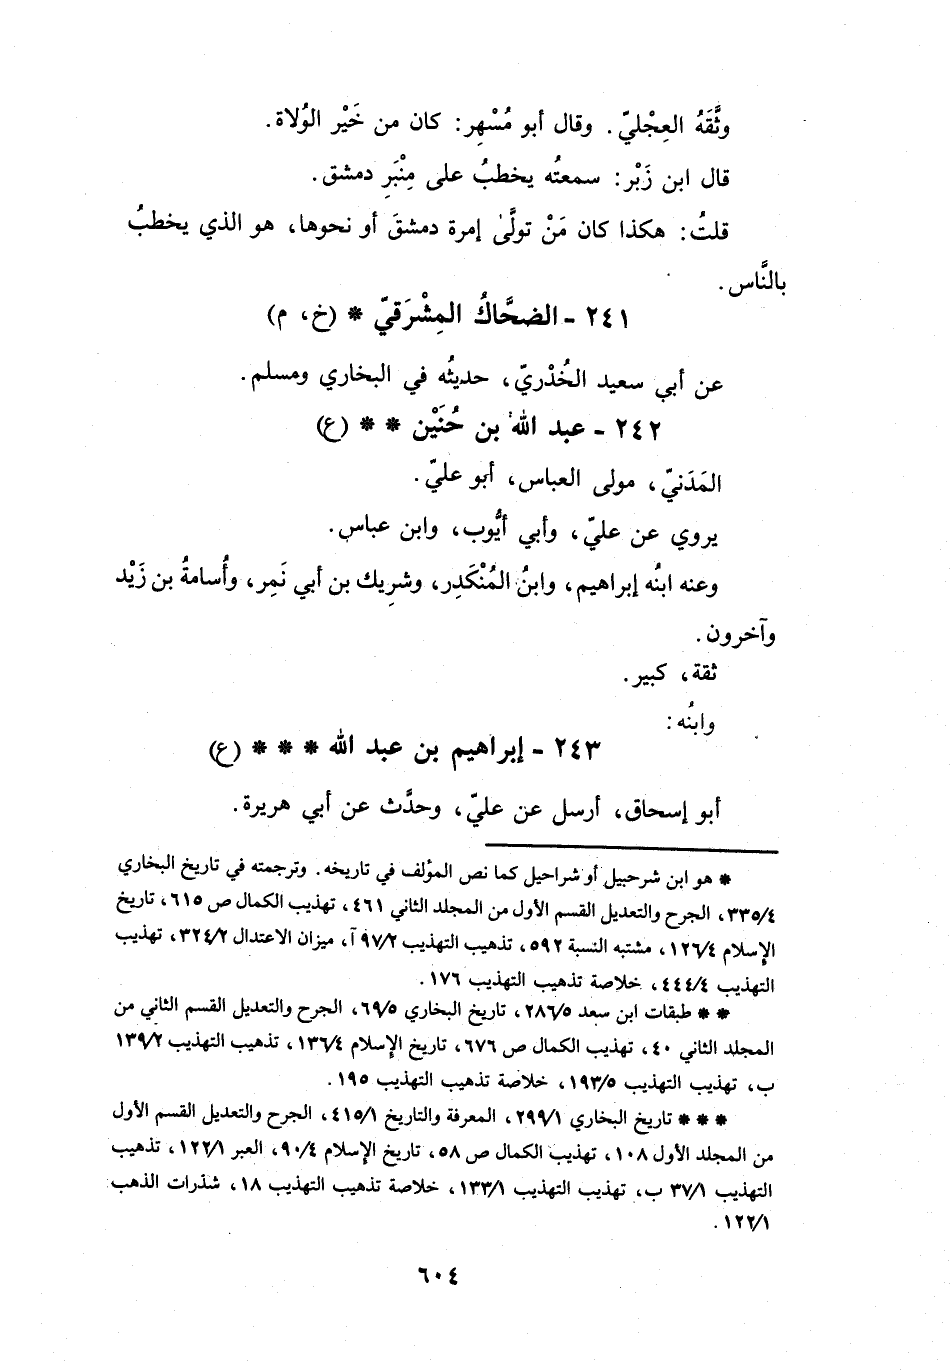 وثَّقَهُ العِجْليّ. وقال أبو مُسْهِر: كان من خَيْر الوُلاة.
قال ابن زَبْر: سمعتُه يخطبُ على مِنْبَرِ دمشق.
قلتُ: هكذا كان مَنْ تولَّىٰ إمرة دمشقَ أو نحوها، هو الذي يخطبُ
بالنَّاس.
٢٤١ - الضحَّاكُ المِشْرَقيّ * (خ، م)
عن أبي سعيد الخُدْريّ، حديثُه في البخاري ومسلم.
٢٤٢ - عبد الله بن حُنَيْن * * (ع)
المَدَنيّ، مولى العباس، أبو عليّ.
يروي عن عليّ، وأبي أيُّوب، وابن عباس.
وعنه ابنُه إبراهيم، وابنُ المُنْكَدِر، وشرِيك بن أبي نَمِر، وأُسامةُ بن زَيْد
وآخرون.
ثقة، كبير.
وابنُه:
٢٤٣ - إبراهيم بن عبد الله * * * (ع)
أبو إسحاق، أرسل عن عليّ، وحدَّث عن أبي هريرة.
* هو ابن شرحبيل أو شراحيل كما نص المؤلف في تاريخه. وترجمته في تاريخ البخاري
٣٣٥/٤، الجرح والتعديل القسم الأول من المجلد الثاني ٤٦١، تهذيب الكمال ص ٦١٥، تاريخ
الإسلام ١٢٦/٤، مشتبه النسبة ٥٩٢، تذهيب التهذيب ٩٧/٢ آ، ميزان الاعتدال ٣٢٤/٢، تهذيب
التهذيب ٤٤٤/٤، خلاصة تذهيب التهذيب ١٧٦.
* * طبقات ابن سعد ٢٨٦/٥، تاريخ البخاري ٦٩/٥، الجرح والتعديل القسم الثاني من
المجلد الثاني ٤٠، تهذيب الكمال ص ٦٧٦، تاريخ الإسلام ١٣٦/٤، تذهيب التهذيب ١٣٩/٢
ب، تهذيب التهذيب ١٩٣/٥، خلاصة تذهيب التهذيب ١٩٥.
* * * تاريخ البخاري ٢٩٩/١، المعرفة والتاريخ ٤١٥/١، الجرح والتعديل القسم الأول
من المجلد الأول ١٠٨، تهذيب الكمال ص ٥٨، تاريخ الإسلام ٩٠/٤، العبر ١٢٢/١، تذهيب
التهذيب ٣٧/١ ب، تهذيب التهذيب ١٣٣/١، خلاصة تذهيب التهذيب ١٨، شذرات الذهب
١٢٢/١.
٦٠٤